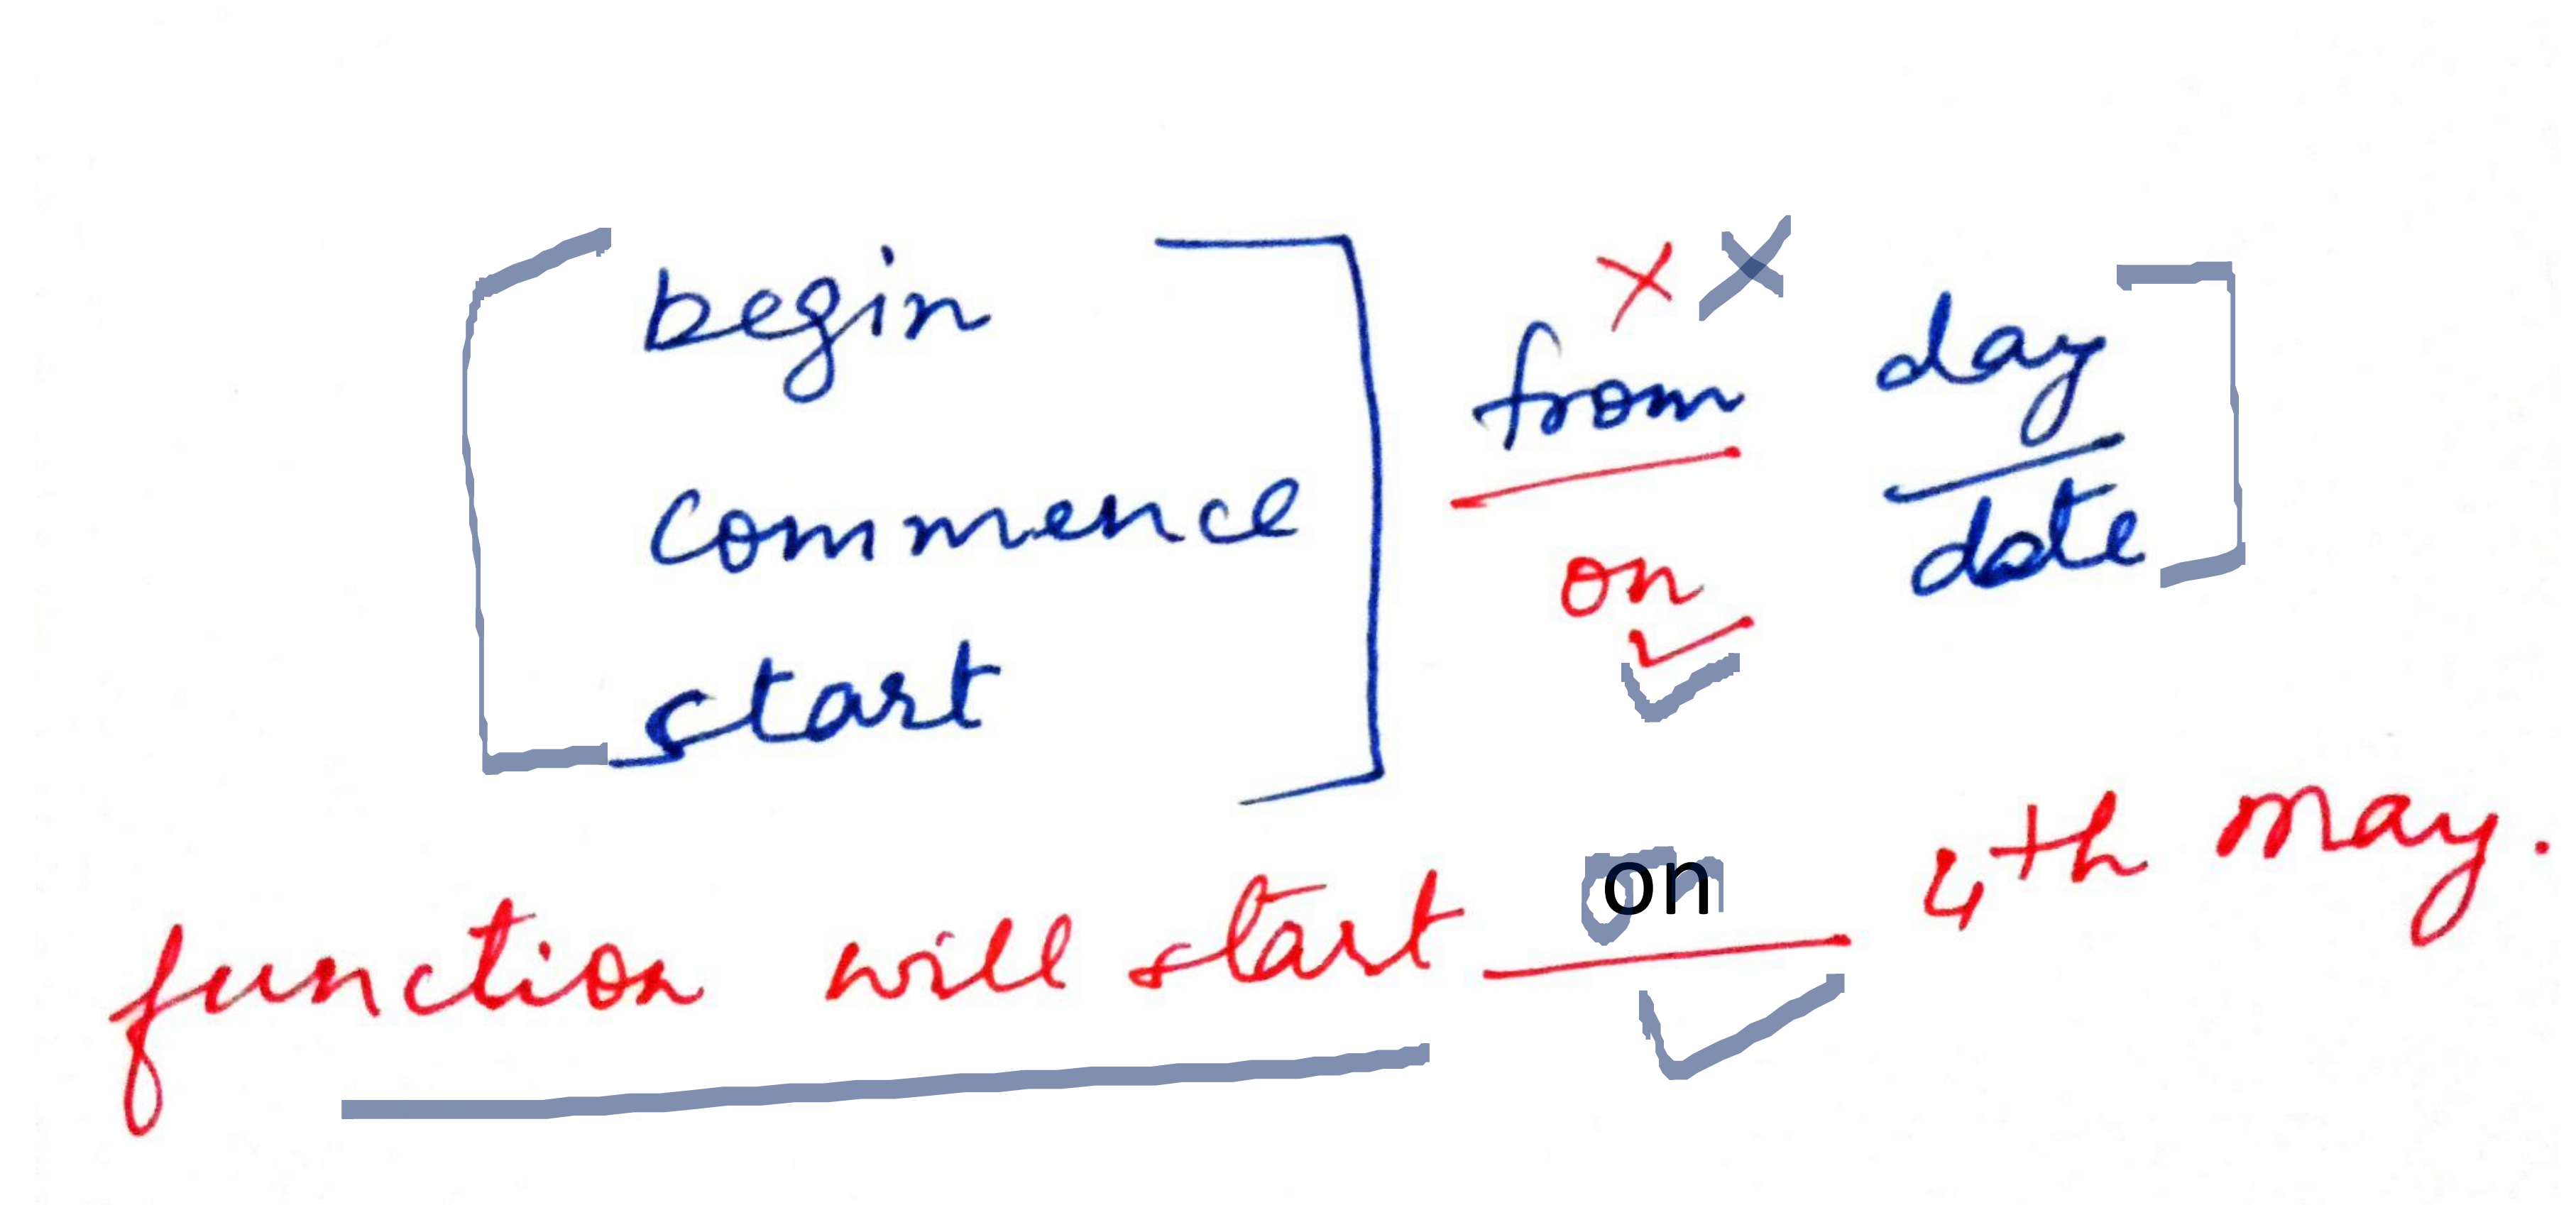 begin
commence
start
× × from
on ✓
day
date
function will start on 4th may.